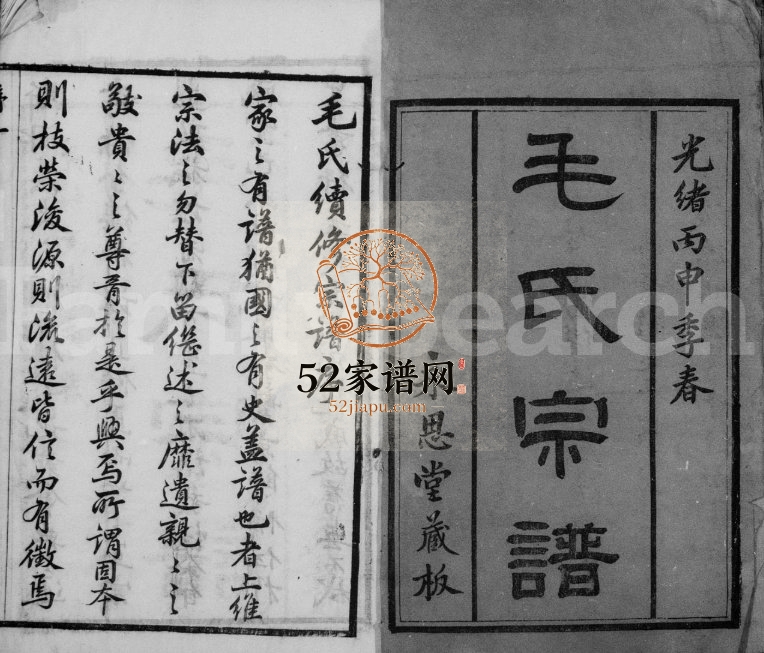 光緒丙申季春
毛氏宗譜
思堂藏板
毛氏續修宗譜
家之有譜猶國之有史蓋譜也者上維
宗法之勿替下啚繼述之靡遺親親之
敬貴貴之尊胥於是乎興焉所謂固本
則枝榮浚源則流遠皆信而有徵焉
52家谱网
52jiapu.com